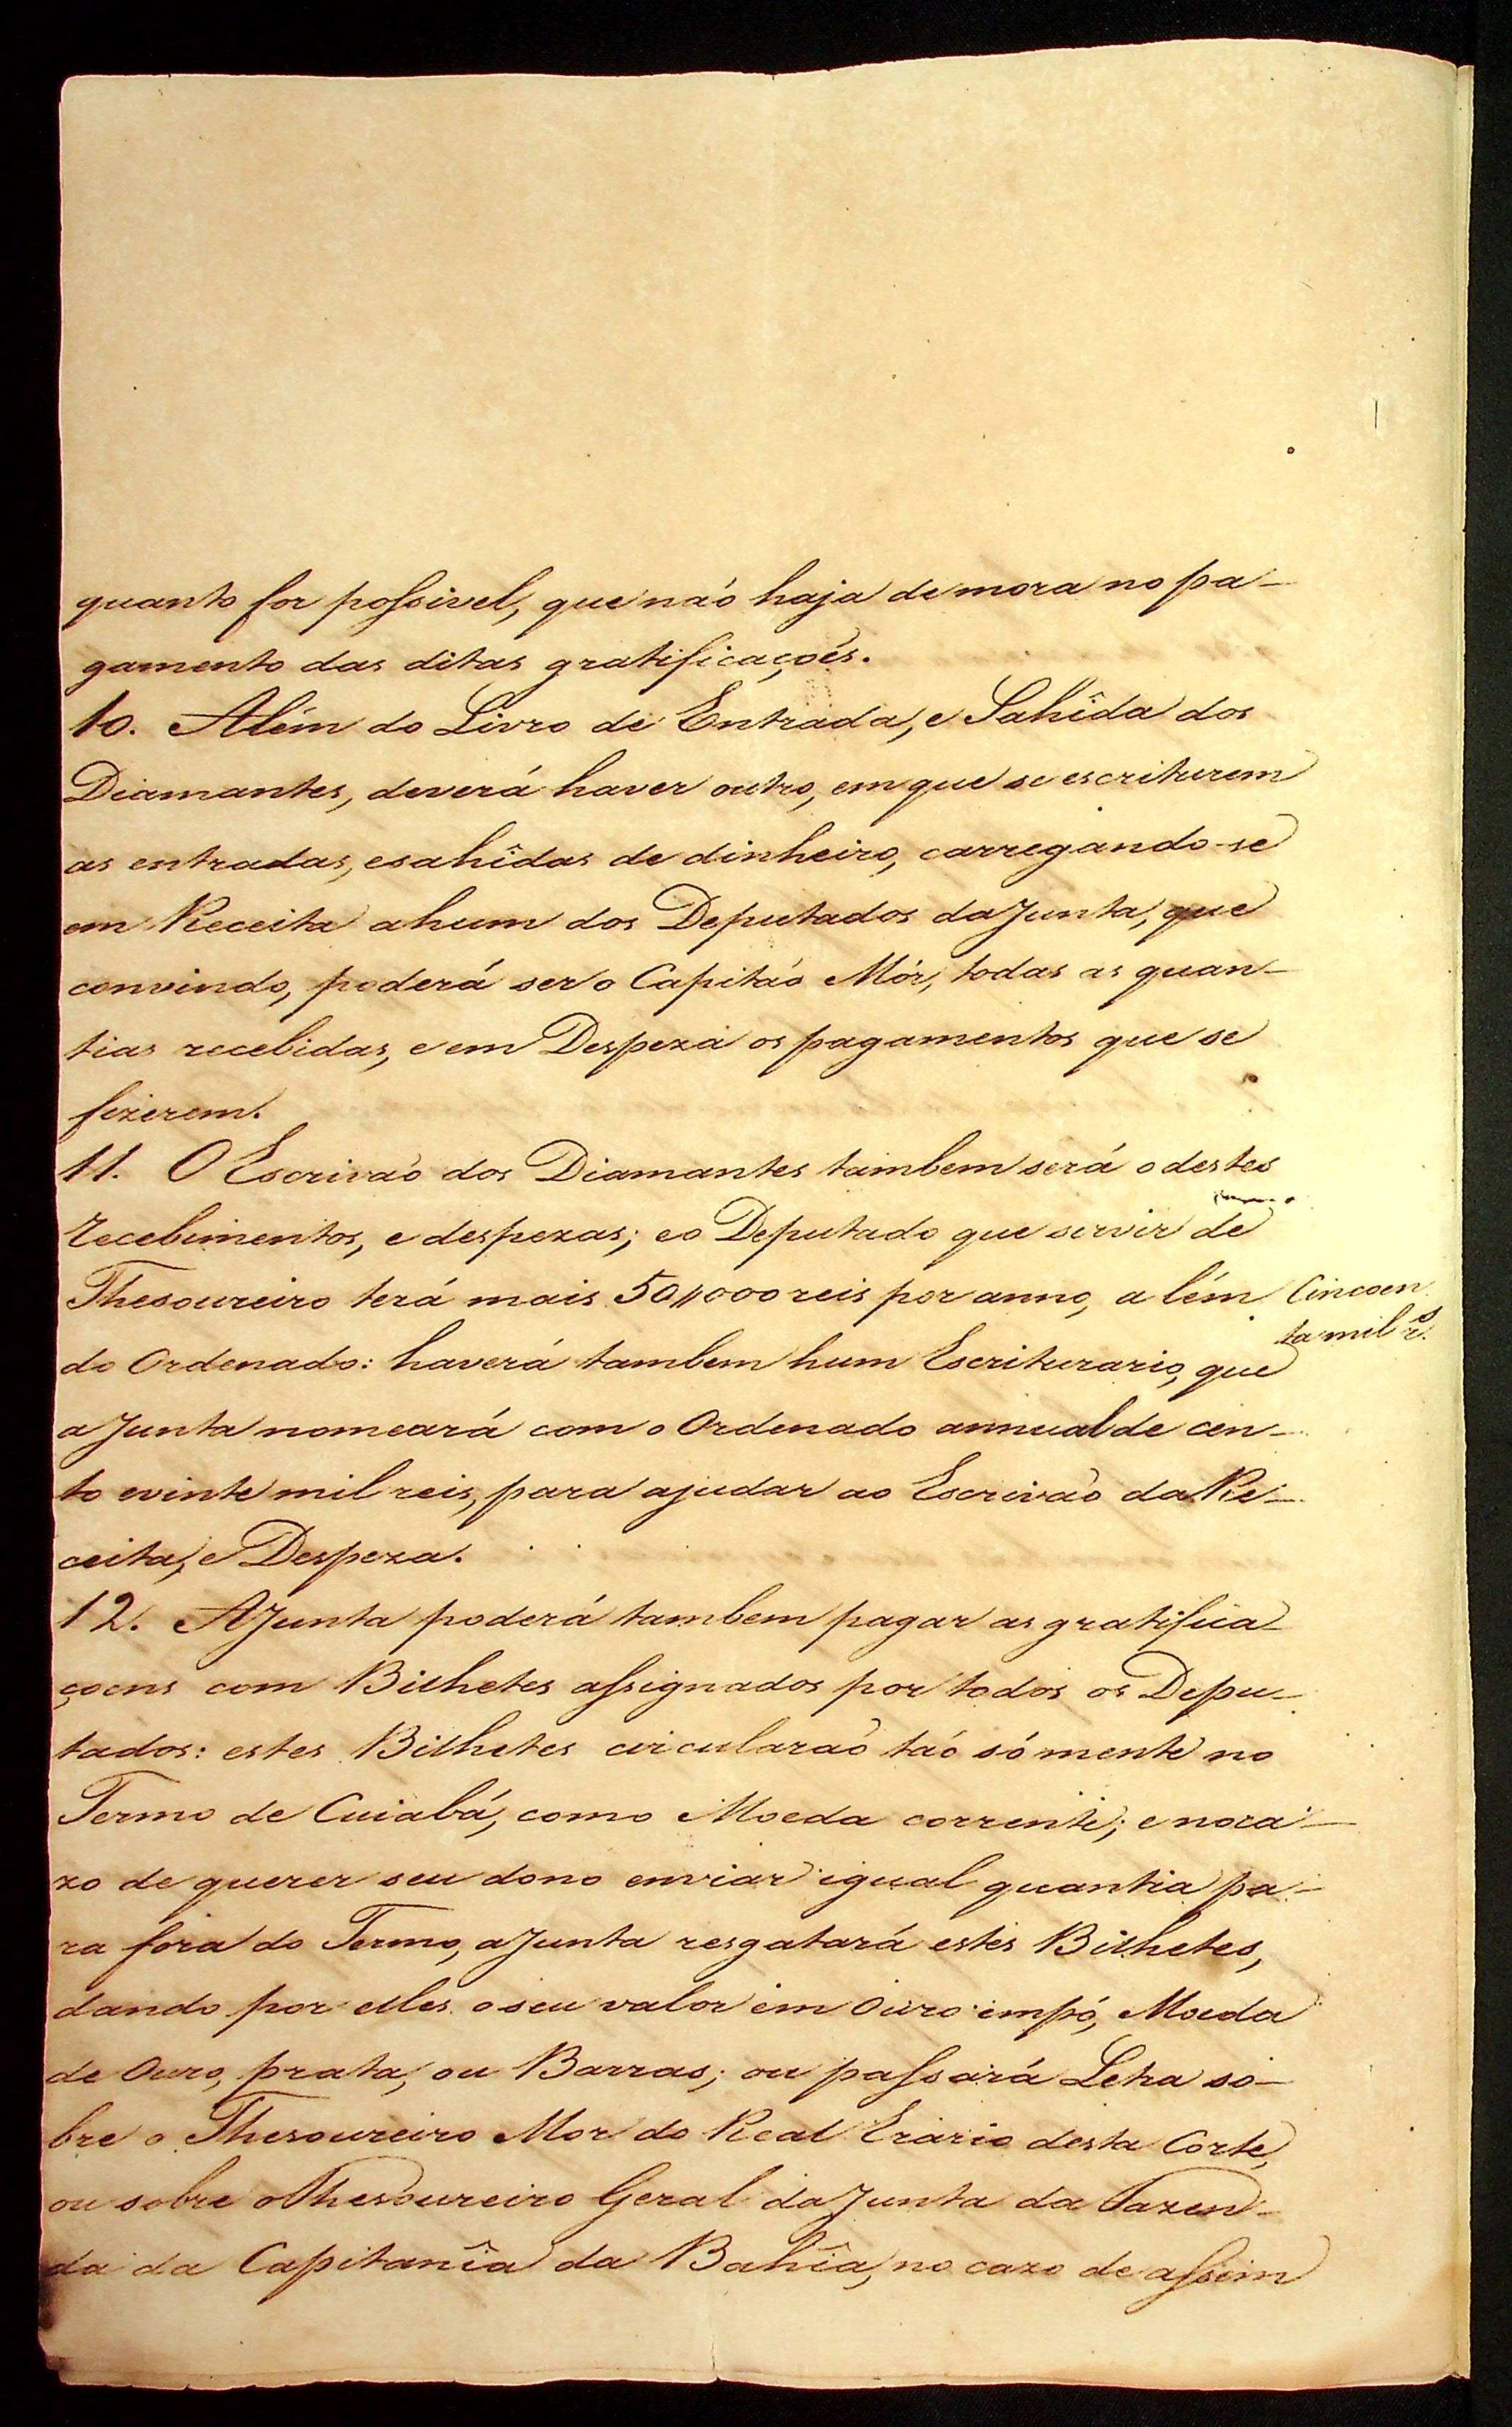 quanto for possivel, que não haja demora no pa-
gamento das ditas gratificaçoẽs.
10. Além do Livro de Entrada, e Sahîda dos
Diamantes, deverá haver outro, em que se escriturem
as entradas, e sahîdas de dinheiro, carregando-se
em Receita a hum dos Deputados da Junta, que
convindo, poderá ser o Capitão Mór, todas as quan-
tias recebidas, e em Despeza os pagamentos que se
fizerem.
11. O Escrivão dos Diamantes tambem será o destes
recebimentos, e despezas; e o Deputado que servir de
Thesoureiro terá mais 50,,000 reis por anno, a lém
Cincoen
ta mil rs.
do Ordenado: haverá tambem hum Escriturario, que
a Junta nomeará com o Ordenado annual de cen-
to e vinte mil reis, para ajudar ao Escrivão da Re-
ceita, e Despeza.
12. A Junta poderá tambem pagar as gratifica-
çoens com Bilhetes assignados por todos os Depu-
tados: estes Bilhetes circularão tão só mente no
Termo de Cuiabá, como Moeda corrente; e no ca-
zo de querer seu dono enviar igual quantia pa-
ra fora do Termo, a Junta resgatará estes Bilhetes,
dando por elles o seu valor em Ouro em pó, Moeda
de Ouro, prata, ou Barras; ou passará Letra so-
bre o Thesoureiro Mor do Real Erario desta Corte,
ou sobre o Thesoureiro Geral da Junta da Fazen-
da da Capitanîa da Bahîa, no cazo de assim